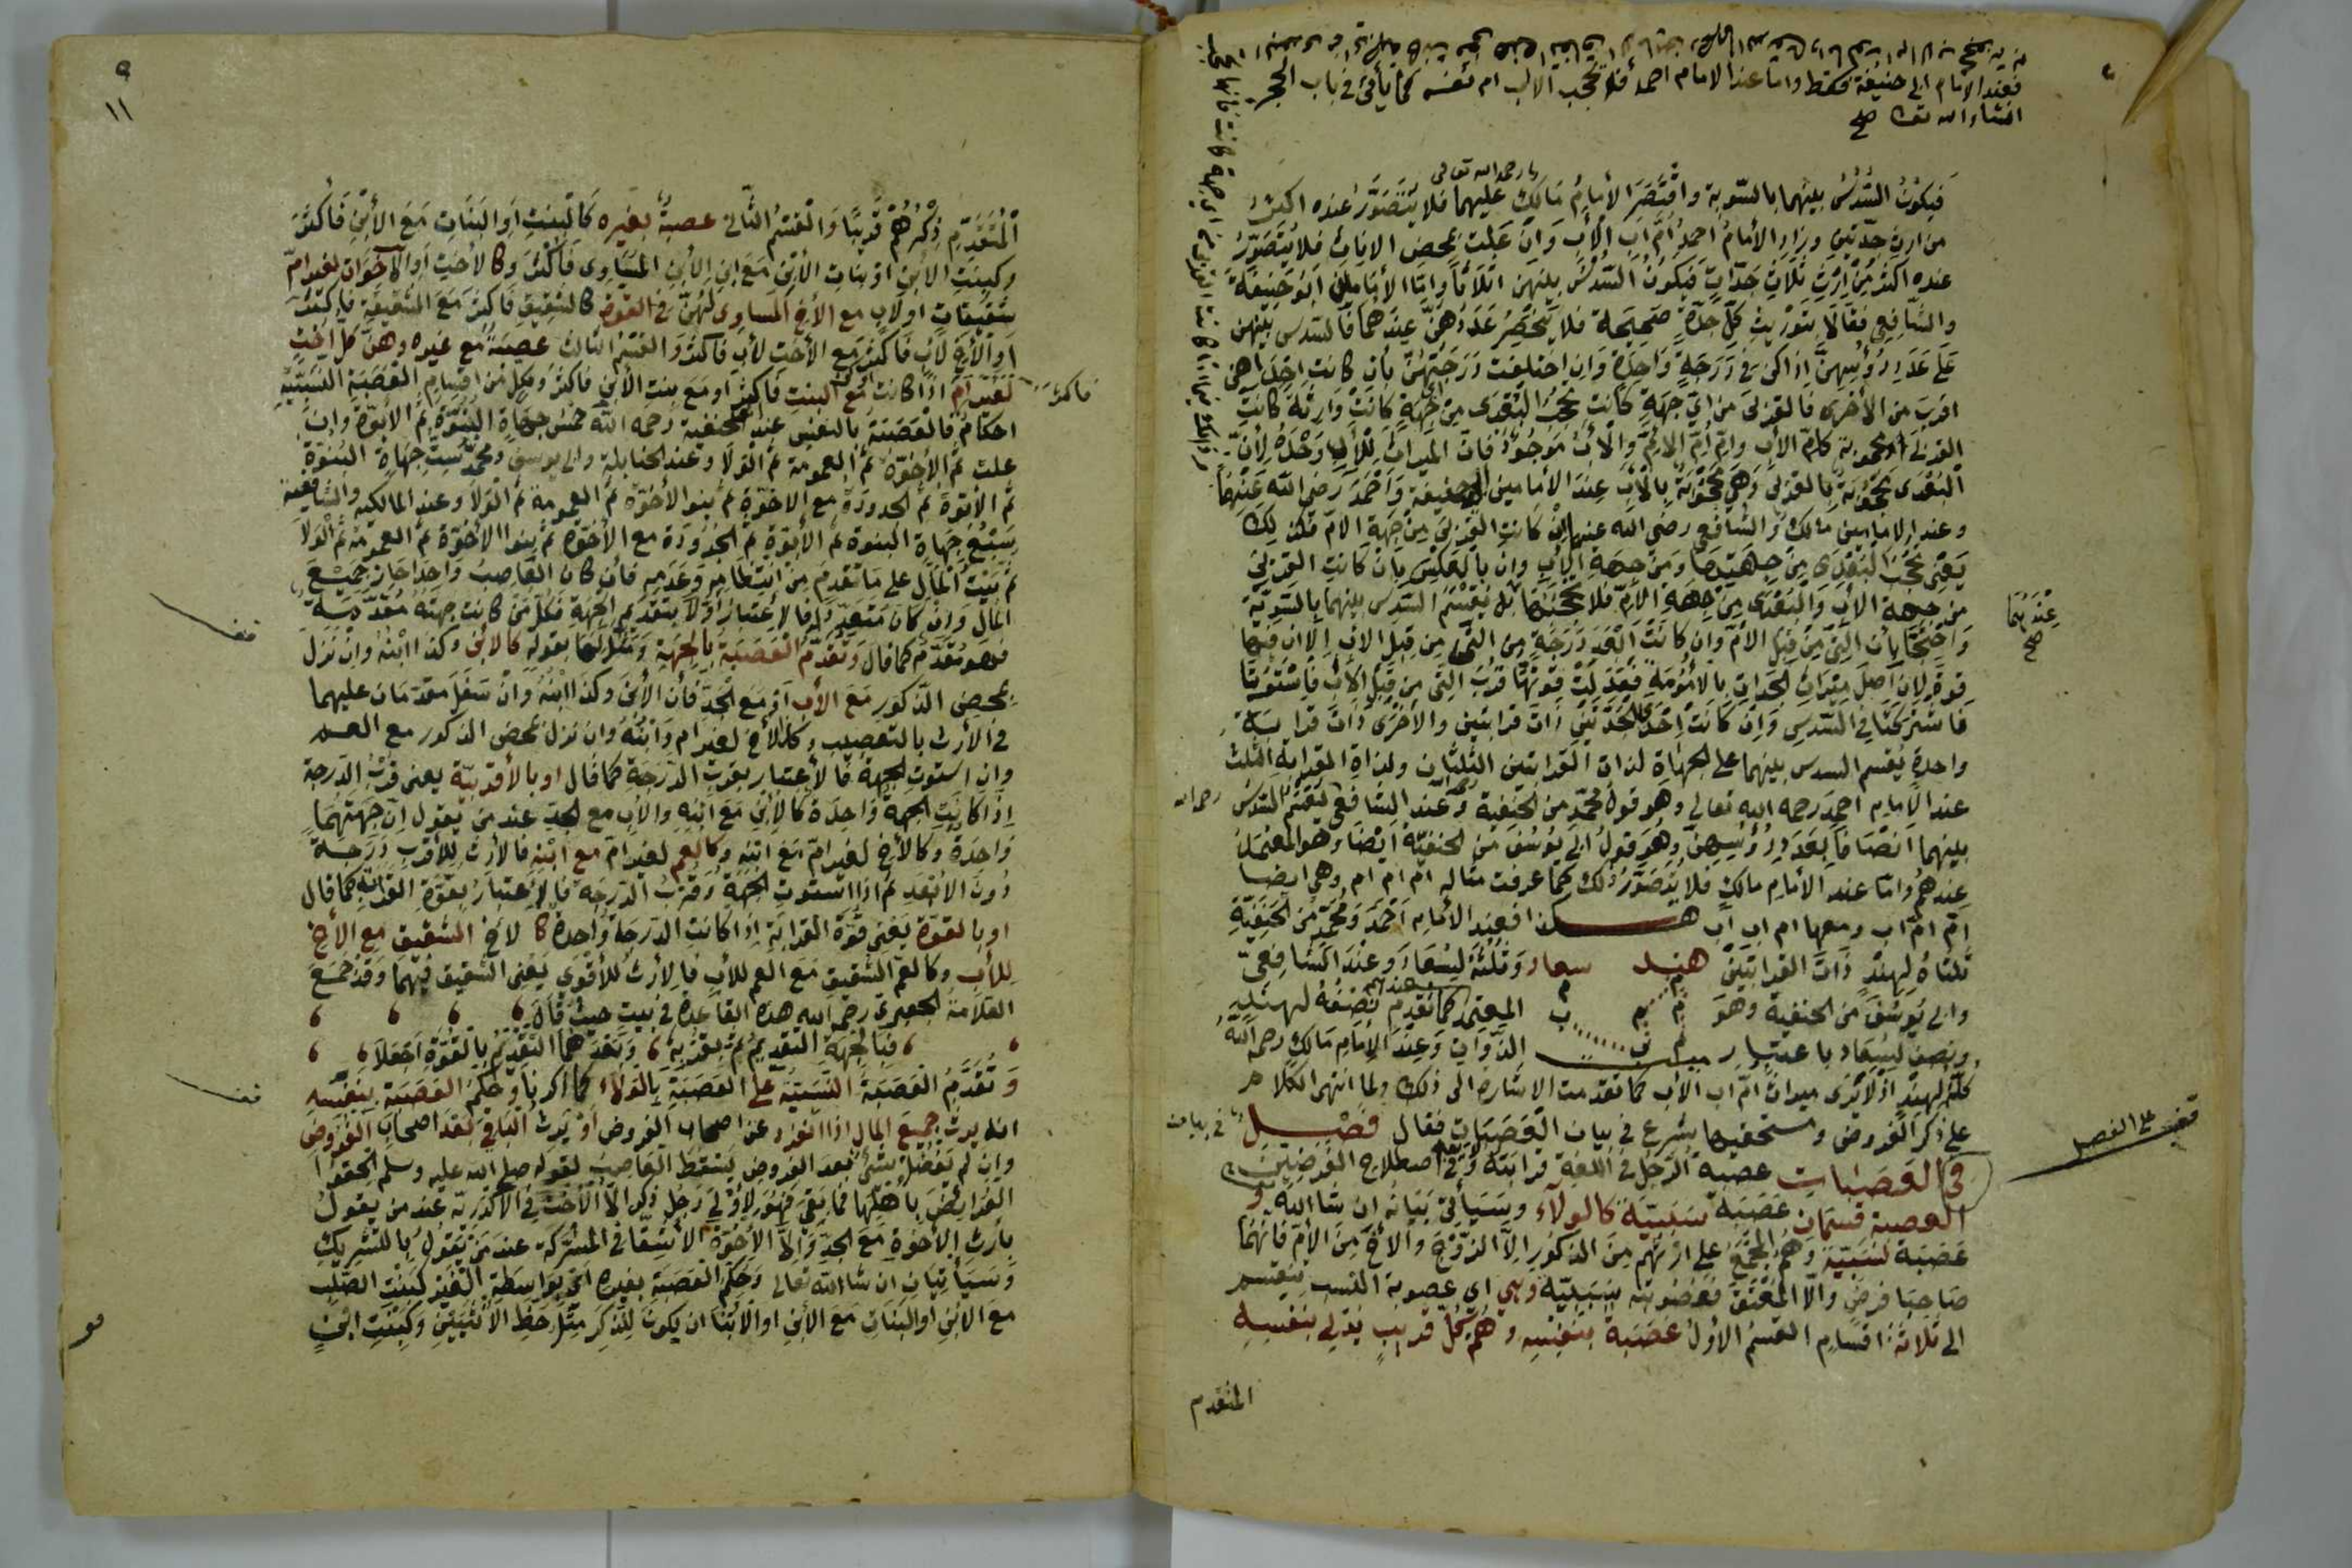 فعند الإمام ابي حنيفة فقط واما عند الامام احمد فلا تحجب الاب ام نفسه كما يأتي في باب الحجب
انشاء الله تعالى صح
رحمه الله تعالى
فيكُونُ السُّدُسُ بينهما بالسّوية واقْتَصَرَ الأمامُ مَالِكٌ عليهما فلا يُتَصَوَّرُ عنده اكثرُ
من ارث جدّتين وزاد الأمامُ احمدُ أُمَّ ابِ الأبِ وَان عَلت بمحض الاناث فلا يُتَصَوّرُ
عنده اكثرُ مِنْ ارْثِ ثلاثِ جَدّاتٍ فيكونُ السّدسُ بينهن اثلاثًا وامّا الأمامان ابو حَنِيفَة
والشّافعي فقالا بتَوْريثِ كلِّ جدّةٍ صحِيحَة فلا يَنْحَصِرُ عَدَدُهنّ عِندهما فالسّدس بَيْنهن
عَلى عَدَدِ رُؤُسِهِنَّ اذا كنّ في دَرَجَةٍ وَاحِدَةٍ وَان اختلفت دَرَجَتهُنّ بأن كانت احْدَاهن
اقربَ من الأخرى فالقربى من ايّ جهةٍ كانت تحجُبُ البُعْدَى مِن ايّ جِهَةٍ كانَتْ وَارِثَةً كانَت
القربَى او محجوبة كامّ الأب وامّ امّ الامّ والأبُ مَوجُودٌ فانّ الميراثَ للأبِ وَحْدَهُ لأنّ
البُعْدَى مَحجُوبَةٌ بالقربى وَهي محجُوبَةٌ بالأبِ عِندَ الأمامين ابي حنيفة وَاحْمَدَ رَضي الله عَنْهما
وعند الامامين مالك والشافعي رضى الله عنهما ان كانت القربى مِنْ جِهَةِ الامّ فكذلك
يعني تحجبُ البُعْدَى مِنْ جِهَتها وَمن جهةِ الأبِ وان بالعكس بان كانتِ القربى
من جهة الابِ وَالبُعْدَى مِنْ جِهَةِ الأمّ فلا تحجبُهَا بل يُقسَمُ السّدس بينهما بالسّويّة
وَاحْتجّا بأن التي من قِبلِ الأمّ وان كانَتْ ابْعدَ دَرَجَةٍ مِنَ التي مِن قِبلِ الاب الا ان فيها
قوة لان اصلَ ميراثِ الجدات بالأمُومَةِ فعَدَلَتْ قوتهَا قُربَ التي من قِبلِ الأبِ فاسْتَوَيَتَا
فاشتركتا في السّدسِ وَان كانتْ احْدَى الجدّتَيْنِ ذَاتَ قرابتين والأخرَى ذَاتَ قرابةٍ
واحدةٍ يُقسم السدس بينهما على الجهاة لذات القرابتين الثلثان ولذاة القرابة الثلث
عند الأمام احمدَ رحمه الله تعالى وهو قولُ محمّدٍ من الحنفية وعند الشّافعي يُقسَمُ السّدسُ رحمه الله
بينهما انصَافا بعَدَدِ رُؤُسِهِنّ وهُو قولُ ابي يوسُفَ مِنَ الحنفيّة ايضًا وهو المعتمدُ
عندهُم وامّا عند الأمام مالكٍ فلا يُتصوّرُ ذلك كما عرفت مثاله ام ام ام وهي ايضا
امّ امّ اب ومعها ام اب اب هكذا فعند الأمام احْمَدَ وَمحمّدٍ مِن الحنفيّةِ
ثلثاهُ لِهِندٍ ذاتِ القرابتَيْنِ هند سعاد وَثُلُثُهُ لِسُعَادَ وعِندَ الشّافعيّ
وابي يُوسُفَ مَن الحنفية وَهوَ م م ب المعتمد عندهم كما تقدم نِصْفُهُ لهندٍ
ونصفٌ لسُعاد باعتبار ميت الذّوات وَعِندَ الأمام مَالكٍ رحمه الله
كُلّهُ لهندٍ اذ لا يَرَى ميراث امّ اب الاب كما تقدمت الاشارة الى ذلك ولما انتهى الكلام
على ذكر الفروض ومستحقيها شرع في بيان العَصَباتِ فقال فَصْـلٌ في بيان
في العَصَبَات عصبة الرّجل في اللّغة قرابتهُ وَفي اصطلاح الفرضيّين
العصبة قسمان عَصَبَة سَبَبيّة كالولآء وسَيَأتي بَيَانُه ان شا الله و
عَصَبَة نَسَبيّة وَهُم المجْمَعُ على ارْثِهم مِنَ الذكور الاّ الزّوْجَ والأخَ مِنَ الأمّ فانهُمَا
صَاحِبَا فرضٍ وَالاّ المُعْتِقَ فعُصُوبَتُه سَبَبيّة وهي اي عصوبة النسب تنقسم
الى ثلاثة اقسام القسمُ الأولُ عَصَبَة بِنَفسِهِ وَهُم كُلُّ قريبٍ يُدلي بنفسِهِ
المتقدم
عِنْدَهُمَا
صح
قف على الفصل
٩
١١
الْمُتَقَدِّمِ ذِكْرُهُمْ قَرِيبًا وَالقسْمُ الثّاني عصبةٌ بغيره كالبِنْتِ اوَالبَنَات مَعَ الأبْنِ فَاكثَرَ
وكبنتِ الأبنِ او بنات الأبْنِ مَعَ ابن الأبنِ المسَاوى فَاكثر وكالأختِ اوالأخَوَات لغير امّ
شقيقات اولاب مع الأخ المسَاوى لهنّ في القوة كالشقيقِ فاكثر مَع الشقيقةِ فاكثر
اوالأخ لأب فاكثر مَع الأخت لأب فاكثر وَالقسْم الثالث عصبَةٌ مَع غيره وهنّ كُلّ أختٍ
لغير امّ اذا كانت مع البنتِ فاكثر او مَع بنت الأبن فاكثر وَلكلٍّ مِن اقسَامِ العَصَبَةِ النسَبيّةِ
فاكثر
احكامٌ فالعَصَبَةُ بالنفس عند الحنفية رحمه الله خمْسُ جِهَاةٍ البُنُوّةُ ثم الأبُوّةُ وان
علت ثم الأخوّة ثم العمومة ثم الوَلا وعند الحنابلة وابي يوسفَ ومحمّدٍ ستُّ جِهَاةٍ البُنُوّة
ثمّ الأبُوّة ثمّ الجدودَة مع الاخوّة ثم بنو الأخوّة ثمّ العمومةُ ثمّ الوَلا وعند المالكية والشافعية
سَبْعُ جِهَاةٍ البنوة ثم الأبُوّة ثم الجُدُودَة مع الأخوّة ثم بنوا الأخوّة ثمّ العمومة ثم الوَلا
ثمّ بَيْتُ المَالِ على ما تقدمَ مِنْ انتظامِهِ وعَدَمِه فان كانَ العَاصِبُ واحدًا حازَ جَمِيعَ
المال وَان كانَ متعَدّدًا فالاعْتبَارُ اوّلا بتقديم الجهة فكلُّ مَنْ كانت جهتُهُ مُقدّمةً
فهو مُقدّم كما قال وَتُقَدّمُ العَصَبَةُ بالجهة وَمثّل لهَا بقوله كالابن وكذا ابنُهُ وان نَزَلَ
بمحض الذكور مَعَ الأب اَو مَع الجدّ فأن الأبنَ وكذا ابْنُهُ وَانْ سَفَلَ مُقدّمَان عليهما
في الأرث بالتعصيب وكالأخ لغير ام وَابْنُهُ وان نزل بمحض الذكور مع العم
وان استوت الجهة فالأعتبار بقرب الدّرَجَة كما قال او بالأقربيّة يعنى قُرْبَ الدرجة
اذَا كانَتِ الجهة وَاحِدَة كالابنِ مَعَ ابنِهِ والأب مع الجد عند من يقول ان جهتهما
واحدةٌ وكالأخ لغير امّ مَع ابنِهِ وكالعم لغير امّ مع ابنِهِ فالأرثُ للأقربِ دَرَجَةً
دُونَ الأبْعَدِ ثم اذا استوت الجهة وَقُرْبُ الدّرجَة فالاعتبارُ بقوّةِ القرابة كما قال
او بالقوّة يعنى قُوّة القرابة اذا كانت الدّرجَة واحدة كالأخ الشقيق مع الأخ
للأب وكالعمّ الشقيق مَعَ العم للأبِ فالأرْثُ للأقوى يَعنى الشقيق فيهما وَقَد جمَعَ
العَلامَةُ الجعبرى رحمه الله هذه القاعدَة في بيتٍ حيث قال
فبالجهَة التقديمُ ثمّ بقُرْبِهِ وَبَعْدَهما التقديمُ بالقُوَّة اجْعَلا
وَتُقَدّمُ العَصَبَةُ النَّسَبيّةُ عَلى العَصَبَةِ بالوَلاء كما ذكرنا وحكمُ العَصَبَة بنفسه
انه يرثُ جميعَ المال اذا انفرد عن اصحاب الفروض او يَرثُ الباقي بَعدَ اصحابِ الفروض
وان لم يَفضُلْ شئٌ بعد الفروض يَسْقُطُ العَاصِبُ لقوله صلى الله عليه وسلم الحقوا
الفرايضَ بأهلها فما بَقِي فهو لِأوْلى رَجُلٍ ذكر الاّ الأخت في الأكدرية عند من يقول
بارث الأخوة مَعَ الجدّ والاّ الأخوة الأشقّا في المشركة عندَ مَنْ يَقولُ بالتشريك
وسَيَأتيَانِ ان شا الله تعالى وَحكم العَصَبَة بغيره اي بواسَطة الغير كبنتِ الصُّلب
مع الابن اوالبَنات مَعَ الأبن اوالأبْنَا ان يكونَ للذّكرِ مثلُ حَظّ الأنثيَيْنِ وَكبنت ابنٍ
قف
قف